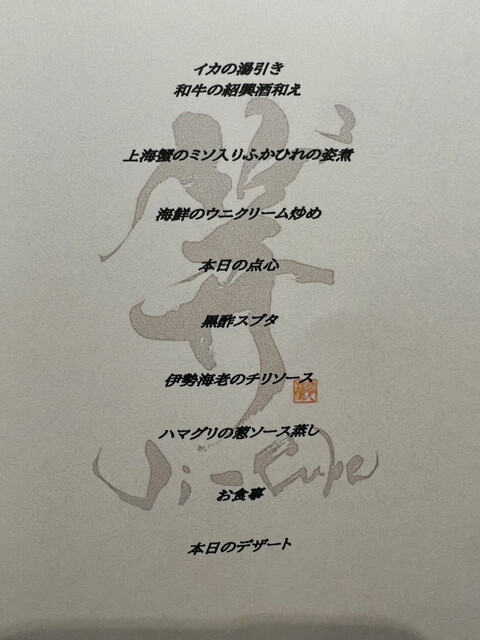 イカの湯引き
和牛の紹興酒和え
上海蟹のミソ入りふかひれの姿煮
海鮮のウニクリーム炒め
本日の点心
黒酢スブタ
伊勢海老のチリソース
ハマグリの葱ソース蒸し
お食事
本日のデザート